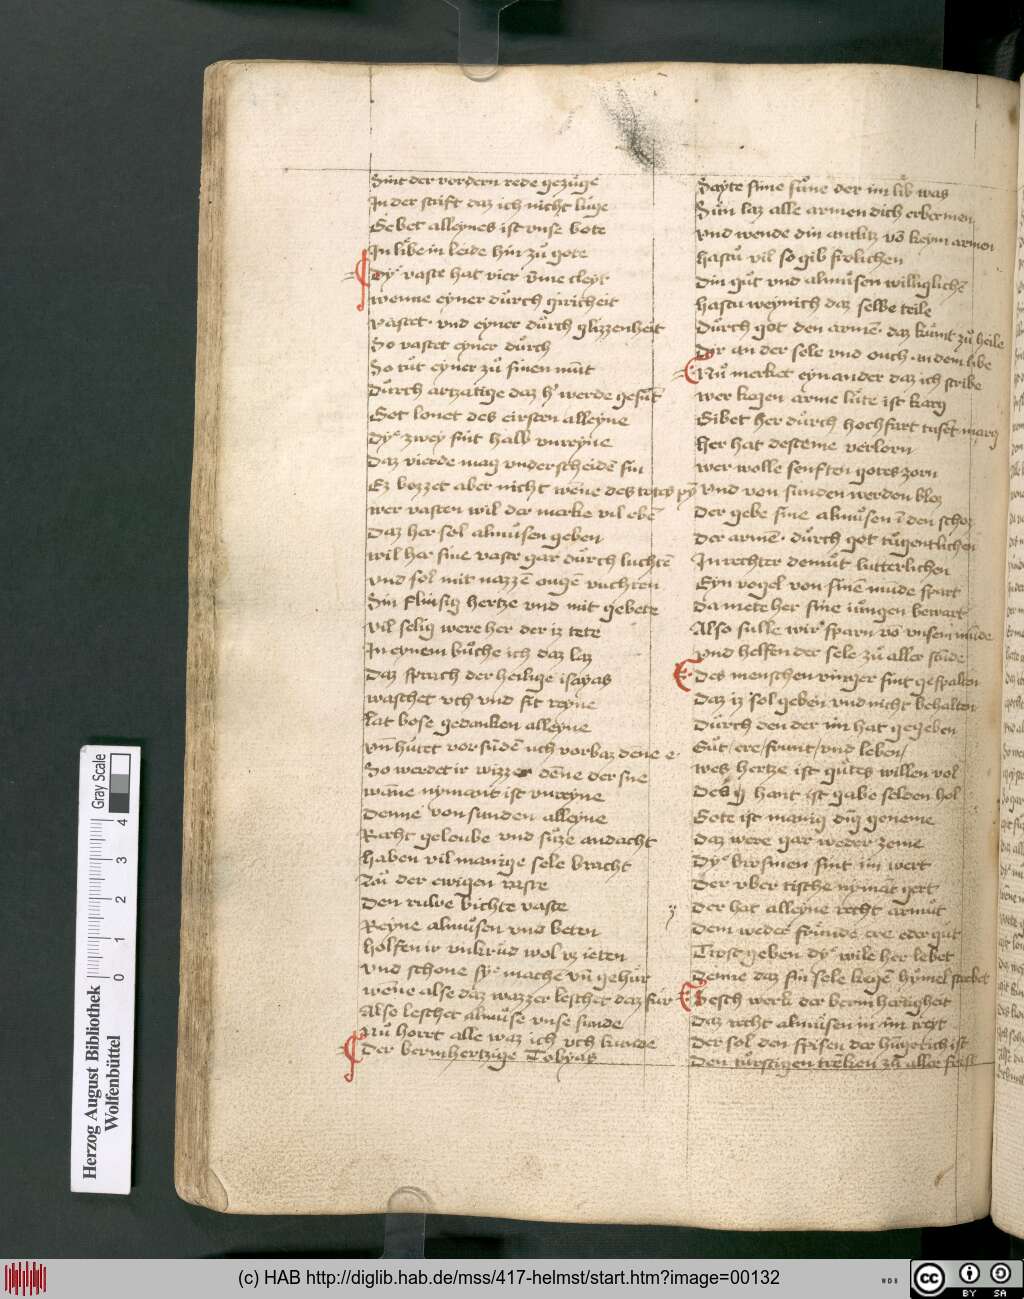 Sint der vordern rede gezuͦge
In der scrift daz ich nicht luͦge
Gebet alleynes ist vnse bote
In libe in leide hin zuͦ gote
Dyͤ vaste hat vier vͦme cleyt
wenne eyner duͦrch giricheit
vastet · vnd eyner duͦrch glizzenheit
So vastet eyner duͦrch
So tuͦt eyner zuͦ sinen muͦt
duͦrch artzatige daz hͤ werde gesuͦt
Got lonet des eirsten alleyne
Dyͤ zwey sint halb vnreyne
Daz vierde mag vnderscheidē sin
Ez bozzet aber nicht wēne des todes pỹ
wer vasten wil der merke vil ebē
Daz her sol almuͦsen geben
wil her sine vaste gar duͦrch luchtē
vnd sol mit nazzē ougē vuchten
Sin flinsig hertze vnd mit gebete
vil selig were her der iz tete
In eynem buͦche ich daz laz
Daz sprach der heilige isayas
waschet vch vnd sit reyne
Lat bose gedanken alleyne
vn̄ huͦtet vor suͦdē uch vorbaz dene e·
So werdet ir wizzer dēne der sne
wāne nymant ist vnreyne
Denne von sunden alleyne
Recht geloube vnd suͦze andacht
haben vil manige sele bracht
Zuͦ der ewigen raste
Den rulve bichte vaste
Reyne almuͦsen vnd beten
holfen ir vnkrud wol vz ieten
vnd schone syͤ mache vn̄ gehuͦr
wēne alse daz wazzer leschet daz fuͦr
Also leschet almuͦse vnse sunde
Nuͦ horet alle waz ich vch kunde
Der bermhertzige Tobyas
Sayte sime suͦne der im lib was
Suͦn laz alle armen dich erbermen
vnd wende din antlitz vō keym armen
hastuͦ vil so gib frolichen
Din guͦt vnd almuͦsen williglichē
hastu weynich daz selbe teile
Duͦrch got den armē · daz kuͦmt zuͦ heile
Dir an der sele vnd ouch · an dem libe
Nuͦ merket eyn ander daz ich scribe
wer kegen arme luͦte ist karg
Gibet her duͦrch hochfart tuset marg
her hat desteme verlorn
wer wolle senften gotes zorn
vnd von sunden werden bloz
Der gebe sine almuͦsen ī den schoz
Der armē · duͦrch got tuͦgentlichen
In rechter demuͦt lutterlichen
Eyn vogel von sinē munde spart
Da mete her sine iuͦngen bewart
Also sulle wir sparn vō vnsem muͦde
vnd helfen der sele zuͦ aller stuͦde
Des menschen vinger sint gespalten
Daz iz sol geben vnd nicht behalten
Duͦrch den der im hat gegeben
Guͦt / ere / frunt / vnd leben /
wes hertze ist guͦtes willen vol
Des hant ist gabe selden hol
Gote ist manig dig geneme
Daz were gar weder zeme
Dyͤ brosmen sint im wert
Der vber tische nymāt gert
Der hat alleyne recht armuͦt
Dem weder fruͦnde · ere eder guͦt
Trost geben dyͤ wile her lebet
Denne daz sin sele kegē hymel strebet
Sesch werk der bermhertigheit
Daz recht almuͦsen in im treyt
Der sol den spisen der huͦgerich ist
Den tuͦrstigen trēken zuͦ aller frist
Herzog August Bibliothek
Wolfenbüttel
Gray Scale
0 1 2 3 4
(c) HAB http://diglib.hab.de/mss/417-helmst/start.htm?image=00132
WDB
cc BY SA